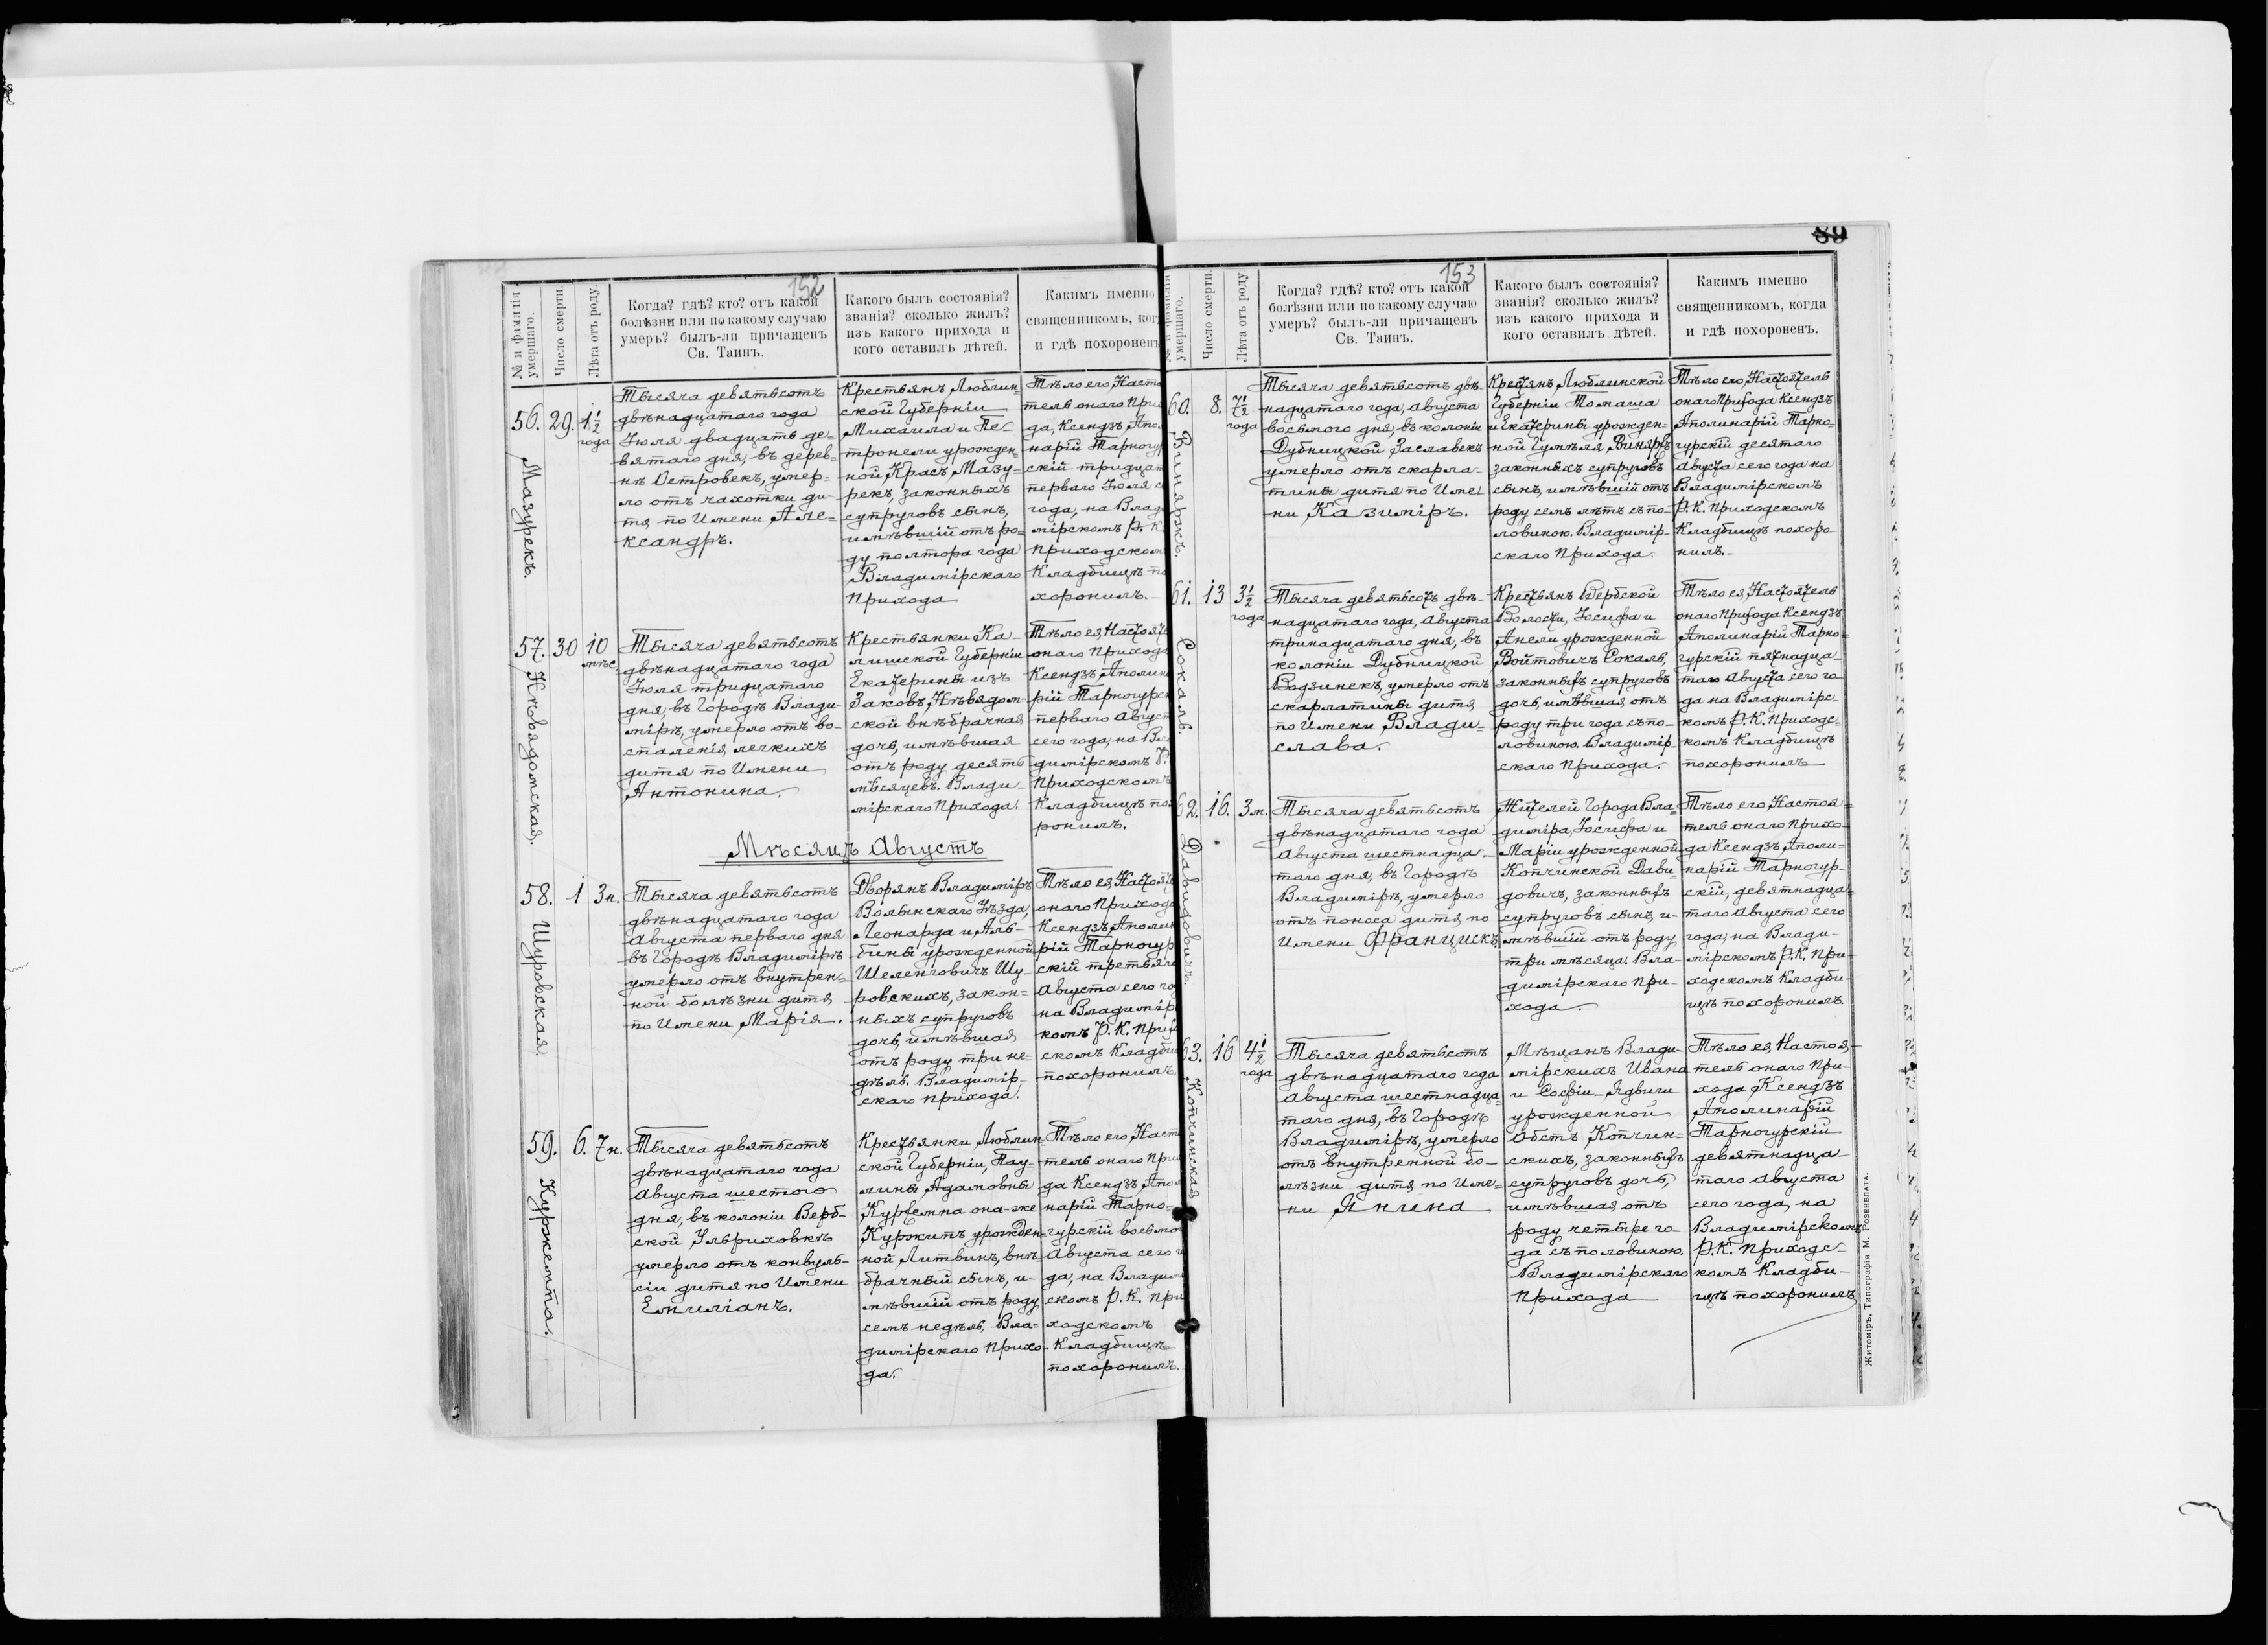 152
№ и фамилія умершаго.
Число смерти.
Лѣта отъ роду.
Когда? гдѣ? кто? отъ какой
болѣзни или по какому случаю
умеръ? былъ-ли причащенъ
Св. Таинъ.
Какого былъ состоянія?
званія? сколько жилъ?
изъ какого прихода и
кого оставилъ дѣтей.
Какимъ именно
священникомъ, ког
и гдѣ похороненъ
56.
Мазурекъ.
29.
1½
года
Тысяча девятьсотъ
двѣнадцатаго года
Іюля двадцать де=
вятаго дня, въ дерев=
нѣ Островекъ, умер=
ло отъ чахотки ди-
тя по Имени Але=
ксандръ.
Крестьянъ Люблин=
ской Губерніи
Михаила и Пе-
тронели урожден
ной Красъ, Мазу=
рекъ, законныхъ
супруговъ сынъ,
имѣвшій отъ ро=
ду полтора года
Владимірскаго
Прихода
Тѣло его, Насто
тель онаго При
да, Ксендзъ Апо
нарій Тарногур
скій тридцат
перваго Іюля с
года, на Влад
мірскомъ Р. К
Приходском
Кладбищѣ по
хоронилъ.
57.
Нѣвядомская.
30
10
мѣс.
Тысяча девятьсотъ
двѣнадцатаго года
Іюля тридцатаго
дня, въ Городѣ Влади-
мірѣ, умерло отъ во-
спаленія легкихъ
дитя по Имени
Антонина.
Крестьянки Ка-
лишской Губерніи
Екатерины изъ
Заковъ, Нѣвядом-
ской внѣбрачная
дочь, имѣвшая
отъ роду десять
мѣсяцевъ. Влади-
мірскаго Прихода.
Тѣло ея, Настояте
онаго Прихода
Ксендзъ Аполин
рій Тарногурск
перваго Август
сего года, на Вла
димірскомъ Р.
Приходскомъ
Кладбищѣ по
ронилъ.
Мѣсяцъ Августъ
58.
Шуровская.
1
3н.
Тысяча девятьсотъ
двѣнадцатаго года
Августа перваго дня
въ Городѣ Владимірѣ
умерло отъ внутрен=
ной болѣзни дитя
по Имени Марія.
Дворянъ Владиміръ
Волынскаго Уѣзда,
Леонарда и Аль-
бины урожденной
Шеленговичъ Шу-
ровскихъ, закон=
ныхъ супруговъ
дочь, имѣвшая
отъ роду три не-
дѣль. Владимір-
скаго прихода.
Тѣло ея, Настояте
онаго Прихода
Ксендзъ Аполин
рій Тарногур
скій третьяго
Августа сего го
на Владимір
комъ Р. К. Прих
скомъ Кладби
похоронилъ.
59.
Куржемпа.
6.
7н.
Тысяча девятьсотъ
двѣнадцатаго года
Августа шестого
дня, въ колоніи Верб-
ской Ульриховкѣ
умерло отъ конвуль-
сіи дитя по Имени
Емиліанъ.
Крестьянки Люблин-
ской Губерніи, Пау-
лины Адамовны
Куржемпа она-же
Куржитъ урожден-
ной Литвинъ, внѣ-
брачный сынъ, и-
мѣвшій отъ роду
семъ недѣль, Вла=
димірскаго Прихо-
да.
Тѣло его, Насто
тель онаго При
да Ксендзъ Апо
нарій Тарно-
гурскій восьмо
Августа сего го
да, на Владим
скомъ Р. К. При
ходскомъ
Кладбищѣ
похоронилъ.
89
153
№ и фамилія умершаго.
Число смерти.
Лѣта отъ роду
Когда? гдѣ? кто? отъ какой
болѣзни или по какому случаю
умеръ? былъ-ли причащенъ
Св. Таинъ.
Какого былъ состоянія?
званія? сколько жилъ?
изъ какого прихода и
кого оставилъ дѣтей.
Какимъ именно
священникомъ, когда
и гдѣ похороненъ.
60.
Виняржъ.
8.
7½
года
Тысяча девятьсотъ двѣ-
надцатаго года, Августа
восьмого дня, въ колоніи
Дубницкой Заславекъ
умерло отъ скарла-
тины дитя по Име-
ни Казиміръ.
Крестянъ Люблинской
Губерніи Томаша
и Екатерины урожден-
ной Гумѣля, Виняржъ
законныхъ супруговъ
сынъ, имѣвшій отъ
роду семь лѣтъ съ по-
ловиною. Владимір-
скаго Прихода.
Тѣло его, Настоятель
онаго Прихода Ксендзъ
Аполинарій Тарно-
гурскій десятаго
Августа сего года на
Владимірскомъ
Р. К. Приходскомъ
Кладбищѣ похоро-
нилъ.-
61.
Сокаль.
13
3½
года
Тысяча девятьсотъ двѣ-
надцатаго года, Августа
тринадцатаго дня, въ
колоніи Дубницкой
Водзинекъ, умерло отъ
скарлатины дитя
по Имени Влади=
слава.
Крестьянъ Вербской
Волости, Іосифа и
Анели урожденной
Войтовичъ Сокаль,
законныхъ супруговъ
дочь, имѣвшая отъ
роду три года съ по-
ловиною. Владимір-
скаго Прихода.
Тѣло ея, Настоятель
онаго Прихода Ксендзъ
Аполинарій Тарно=
гурскій пятнадца-
таго Августа сего го
да на Владимірс-
комъ Р. К. Приходс-
комъ Кладбищѣ
похоронилъ
62.
Давидовичъ.
16.
3м.
Тысяча девятьсотъ
двѣнадцатаго года
Августа шестнадца-
таго дня, въ Городѣ
Владимірѣ, умерло
отъ поноса дитя по
Имени Францискъ
Жителей Города Вла-
диміра, Іосифа и
Маріи урожденной
Копчинской Дави-
довичъ, законныхъ
супруговъ сынъ, и-
мѣвшій отъ роду
три мѣсяца. Вла-
димірскаго При-
хода.
Тѣло его, Настоя=
тель онаго Прихо-
да Ксендзъ Аполи=
нарій Тарногур-
скій, девятнадца-
таго Августа сего
года, на Влади-
мірскомъ Р. К. При-
ходскомъ Кладби-
щѣ похоронилъ
63.
Копчинская
16
4½
года
Тысяча девятьсотъ
двѣнадцатаго года
Августа шестнадца-
таго дня, въ Городѣ
Владимірѣ, умерло
отъ внутренной бо-
лѣзни дитя по Име=
ни Янина
Мѣщанъ Влади-
мірскихъ Ивана
и Софіи-Ядвиги
урожденной
Обстъ Копчин=
скихъ, законныхъ
супруговъ дочь,
имѣвшая отъ
роду четыре го-
да съ половиною.
Владимірскаго
Прихода
Тѣло ея, Настоя-
тель онаго При-
хода Ксендзъ
Аполинарій
Тарногурскій
девятнадца-
таго Августа
сего года, на
Владимірскомъ
Р. К. Приходс-
комъ Кладби-
щѣ похоронилъ
Житоміръ, Типографія М. Розенблата.